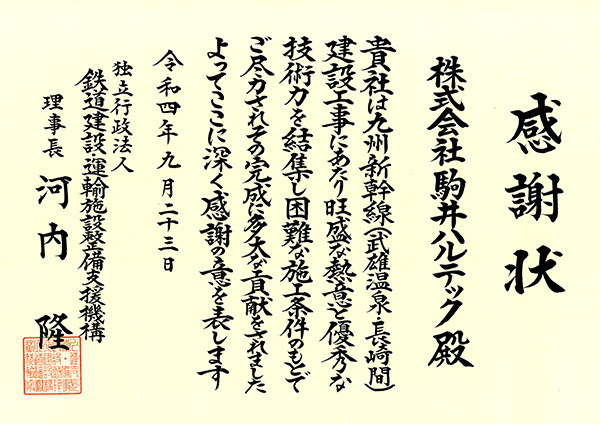 感謝状
株式会社 駒井ハルテック 殿
貴社は九州新幹線(武雄温泉・長崎間)
建設工事にあたり旺盛な熱意と優秀な
技術力を結集し困難な施工条件のもとで
ご尽力されその完成に多大な貢献をされました
よってここに深く感謝の意を表します
令和四年九月二十三日
独立行政法人
鉄道建設・運輸施設整備支援機構
理事長 河内 隆